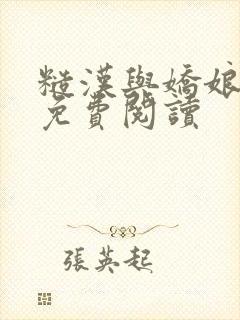 糙漢與嬌娘
免費閱讀
張英起